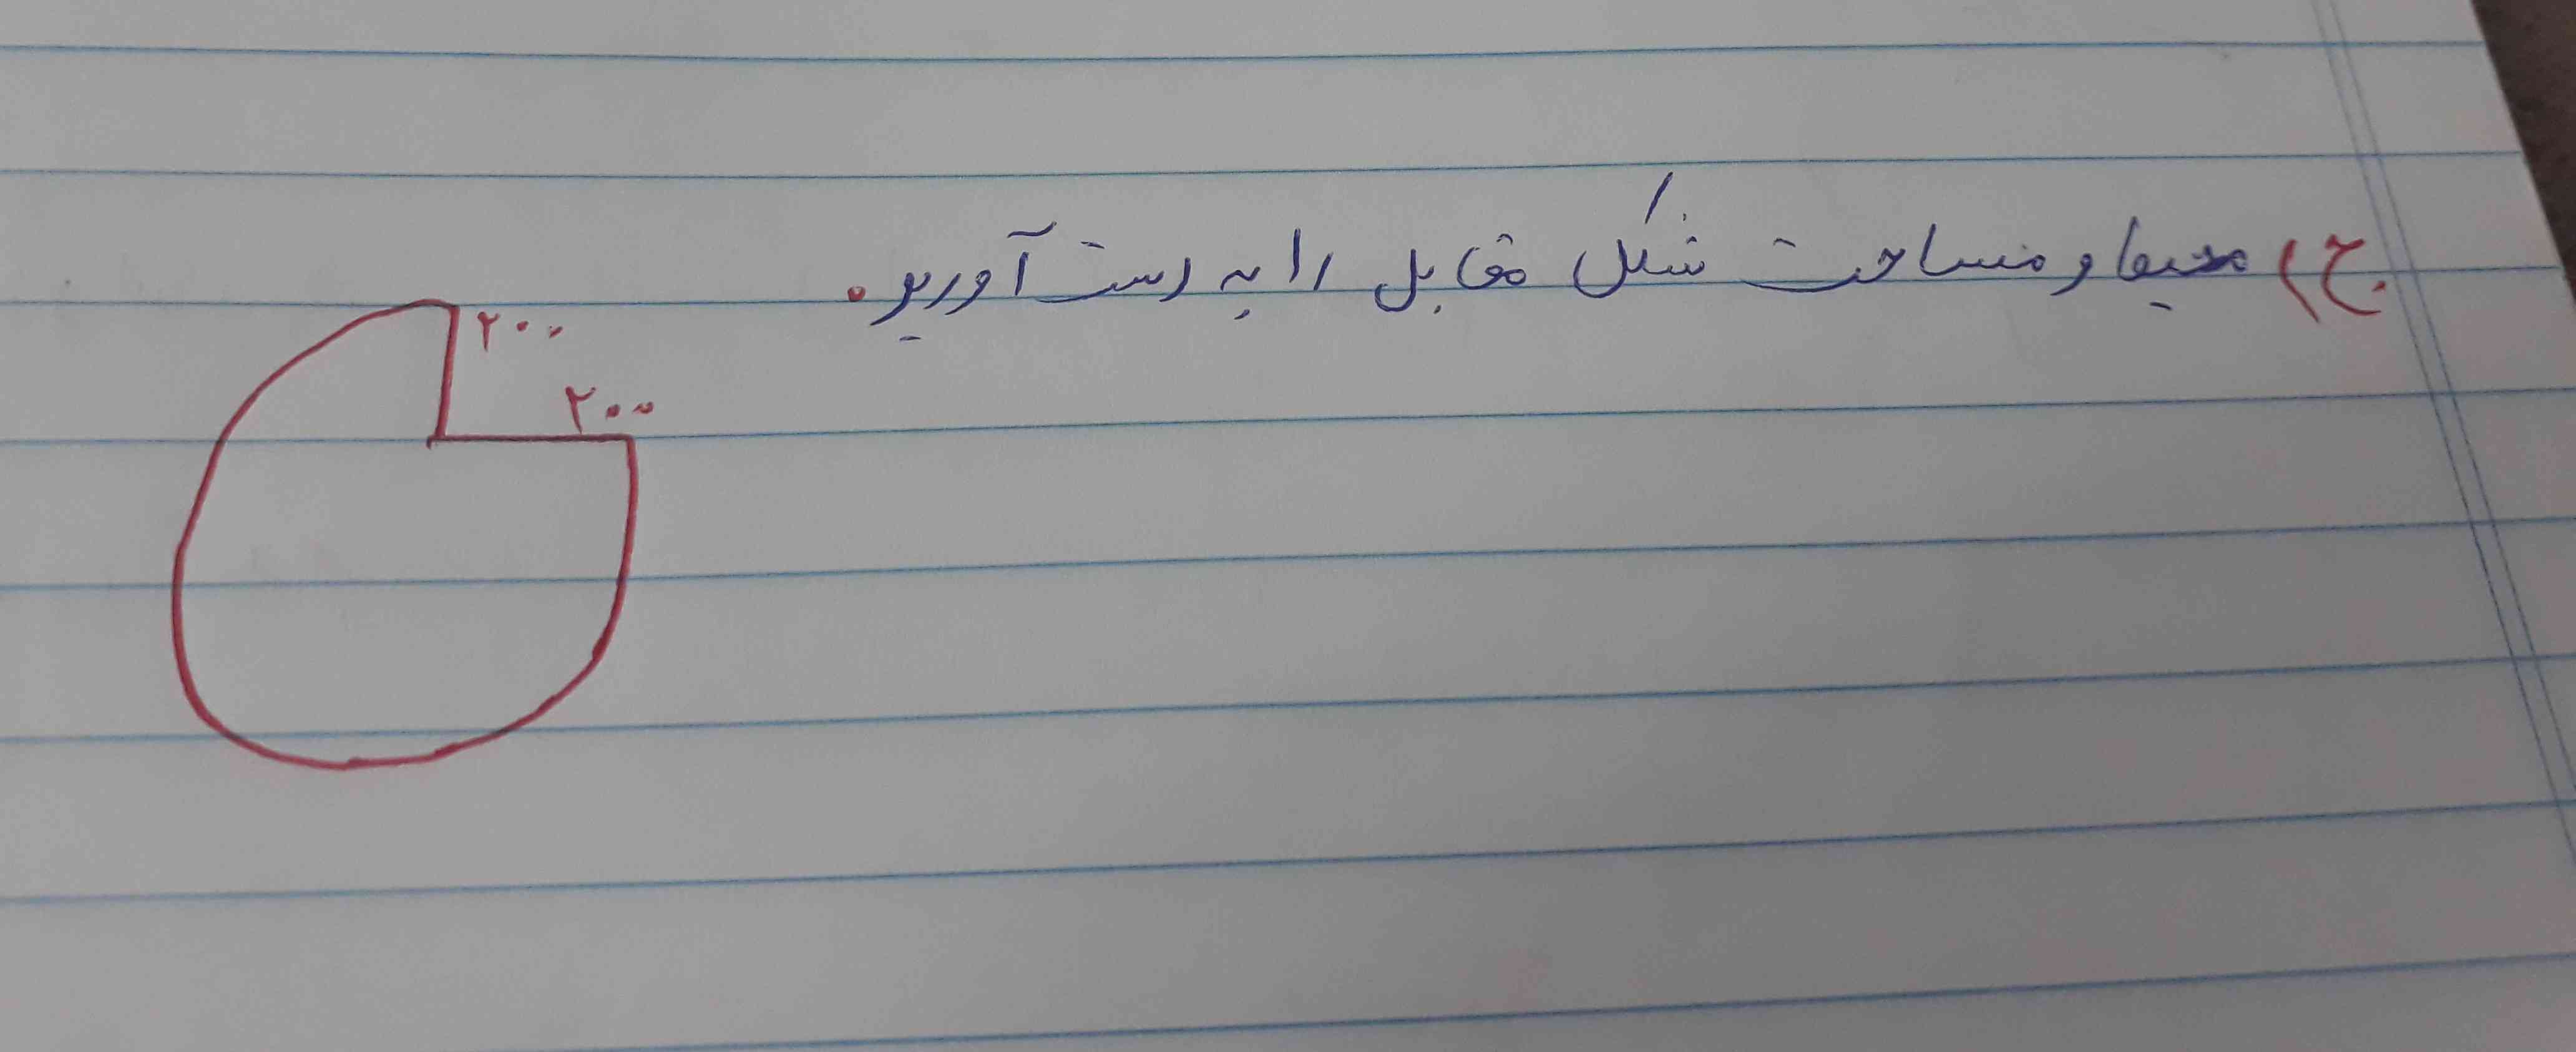 ج) محیط و مساحت شکل مقابل را به دست آورید.
۲۰۰
۲۰۰